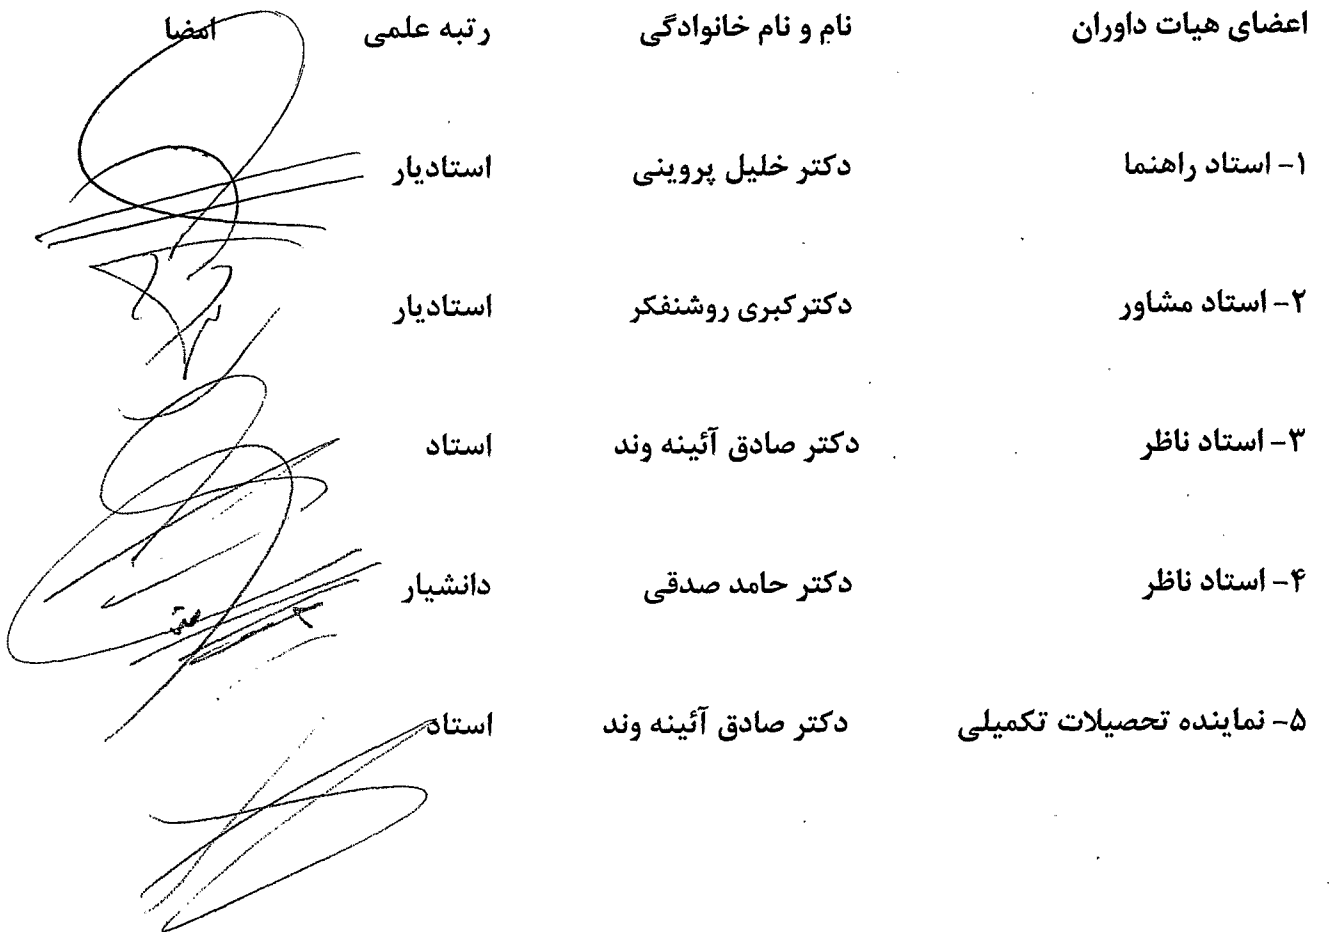 اعضای هیات داوران نام و نام خانوادگی رتبه علمی امضا
۱- استاد راهنما دکتر خلیل پروینی استادیار
۲- استاد مشاور دکتر کبری روشنفکر استادیار
۳- استاد ناظر دکتر صادق آئینه وند استاد
۴- استاد ناظر دکتر حامد صدقی دانشیار
۵- نماینده تحصیلات تکمیلی دکتر صادق آئینه وند استاد